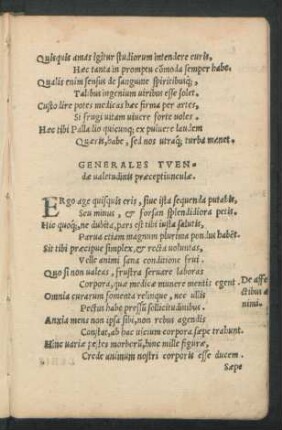 Quisquis amas igitur studiorum intendere curis,
Hæc tanta in promptu cōmoda semper habe.
Qualis enim sensus de sanguine spiritibusq;,
Talibus ingenium uiribus esse solet.
Custodire potes medicas hæc firma per artes,
Si frugi uitam uiuere forte uoles.
Hæc tibi Palladio quicunq; ex puluere laudem
Quæris, habe, sed nos utraq; turba manet.
GENERALES TVEN-
dæ ualetudinis præceptiunculæ.
ERgo age quisquis eris, siue ista sequenda putabis,
Seu minus, & forsan splendidiora petis,
Hic quoq;, ne dubita, pars est tibi iusta salutis,
Parua etiam magnum plurima pondus habēt.
Sit tibi præcipue simplex, & recta uoluntas,
Velle animi sana conditione frui.
Quo si non ualeas, frustra seruare laboras
Corpora, quæ medicæ munere mentis egent
De affe
ctibus a
nimi.
Omnia curarum fomenta relinque, nec ullis
Pectus habe pressū sollicitudinibus.
Anxia mens non ipsa sibi, non rebus agendis
Constat, ab hac uitium corpora sæpe trahunt.
Hinc uariæ pestes morborū, hinc mille figuræ,
Crede animum nostri corporis esse ducem.
Sæpe